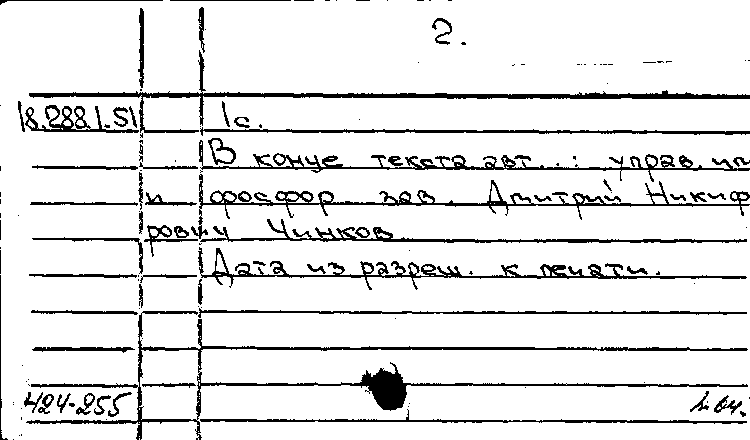 2.
18.288.1.51 1с.
В конце текста авт.: управ. ип
и фосфор. зав. Дмитрий Никиф
рович Чинков
Дата из разреш. к печати.
424-255